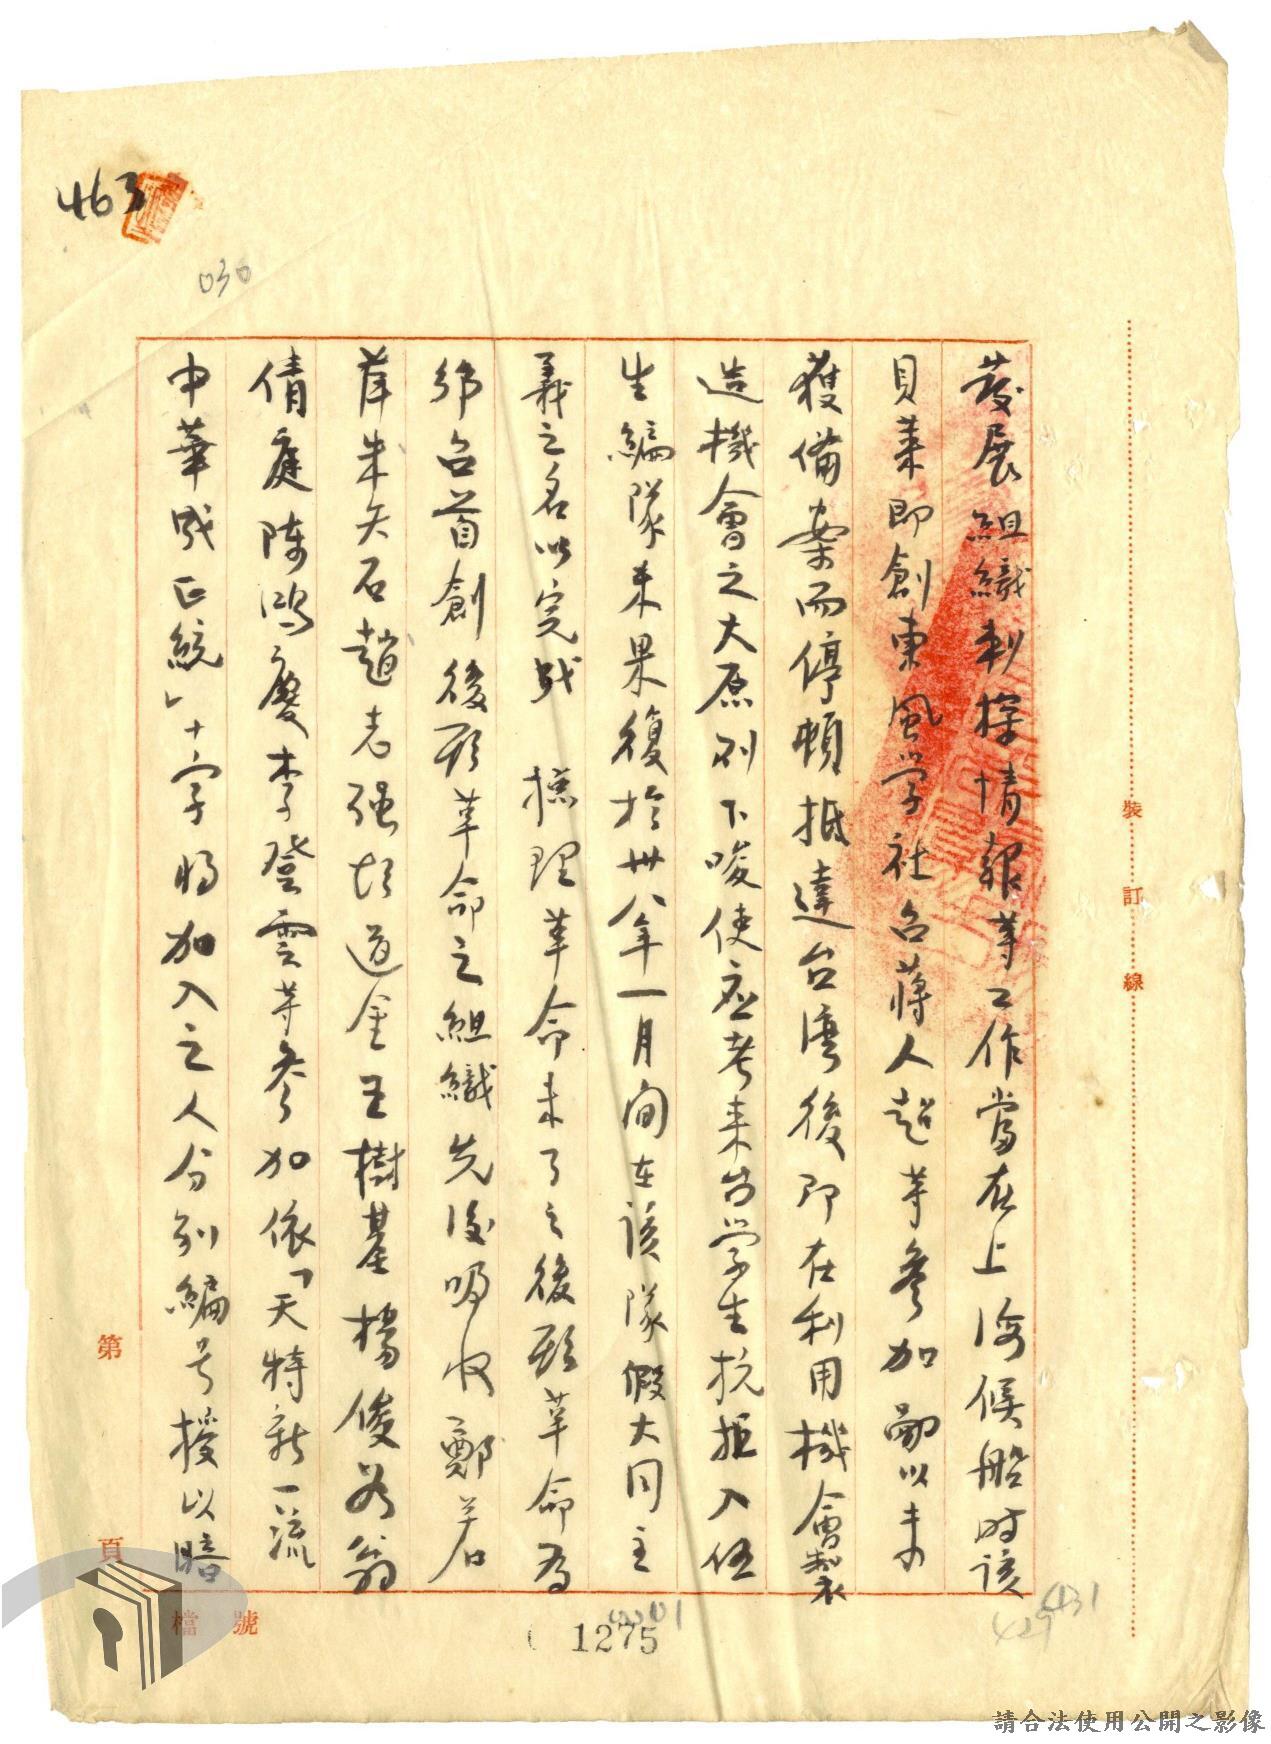 463
030
發展組織刺探情報等工作當在上海候船時該
貝萊即創東風学社召蔣人超等參加嗣以未
獲備案而停頓抵達台湾後即在利用機會製
造機會之大原則下唆使應考来台学生抗拒入伍
生編隊未果復於卅八年一月间在該隊假大同主
義之名以完成 總理革命未了之後期革命為
号召首創後期革命之組織先後吸收鄭若
萍朱矢石趙志强胡道金王樹基楊俊
倩庭陳鴻慶李登雲等參加依「天特新一流
中華成正統」十字將加入之人分别編号授以暗
裝訂線
第 頁
檔號
1275
429
431
請合法使用公開之影像